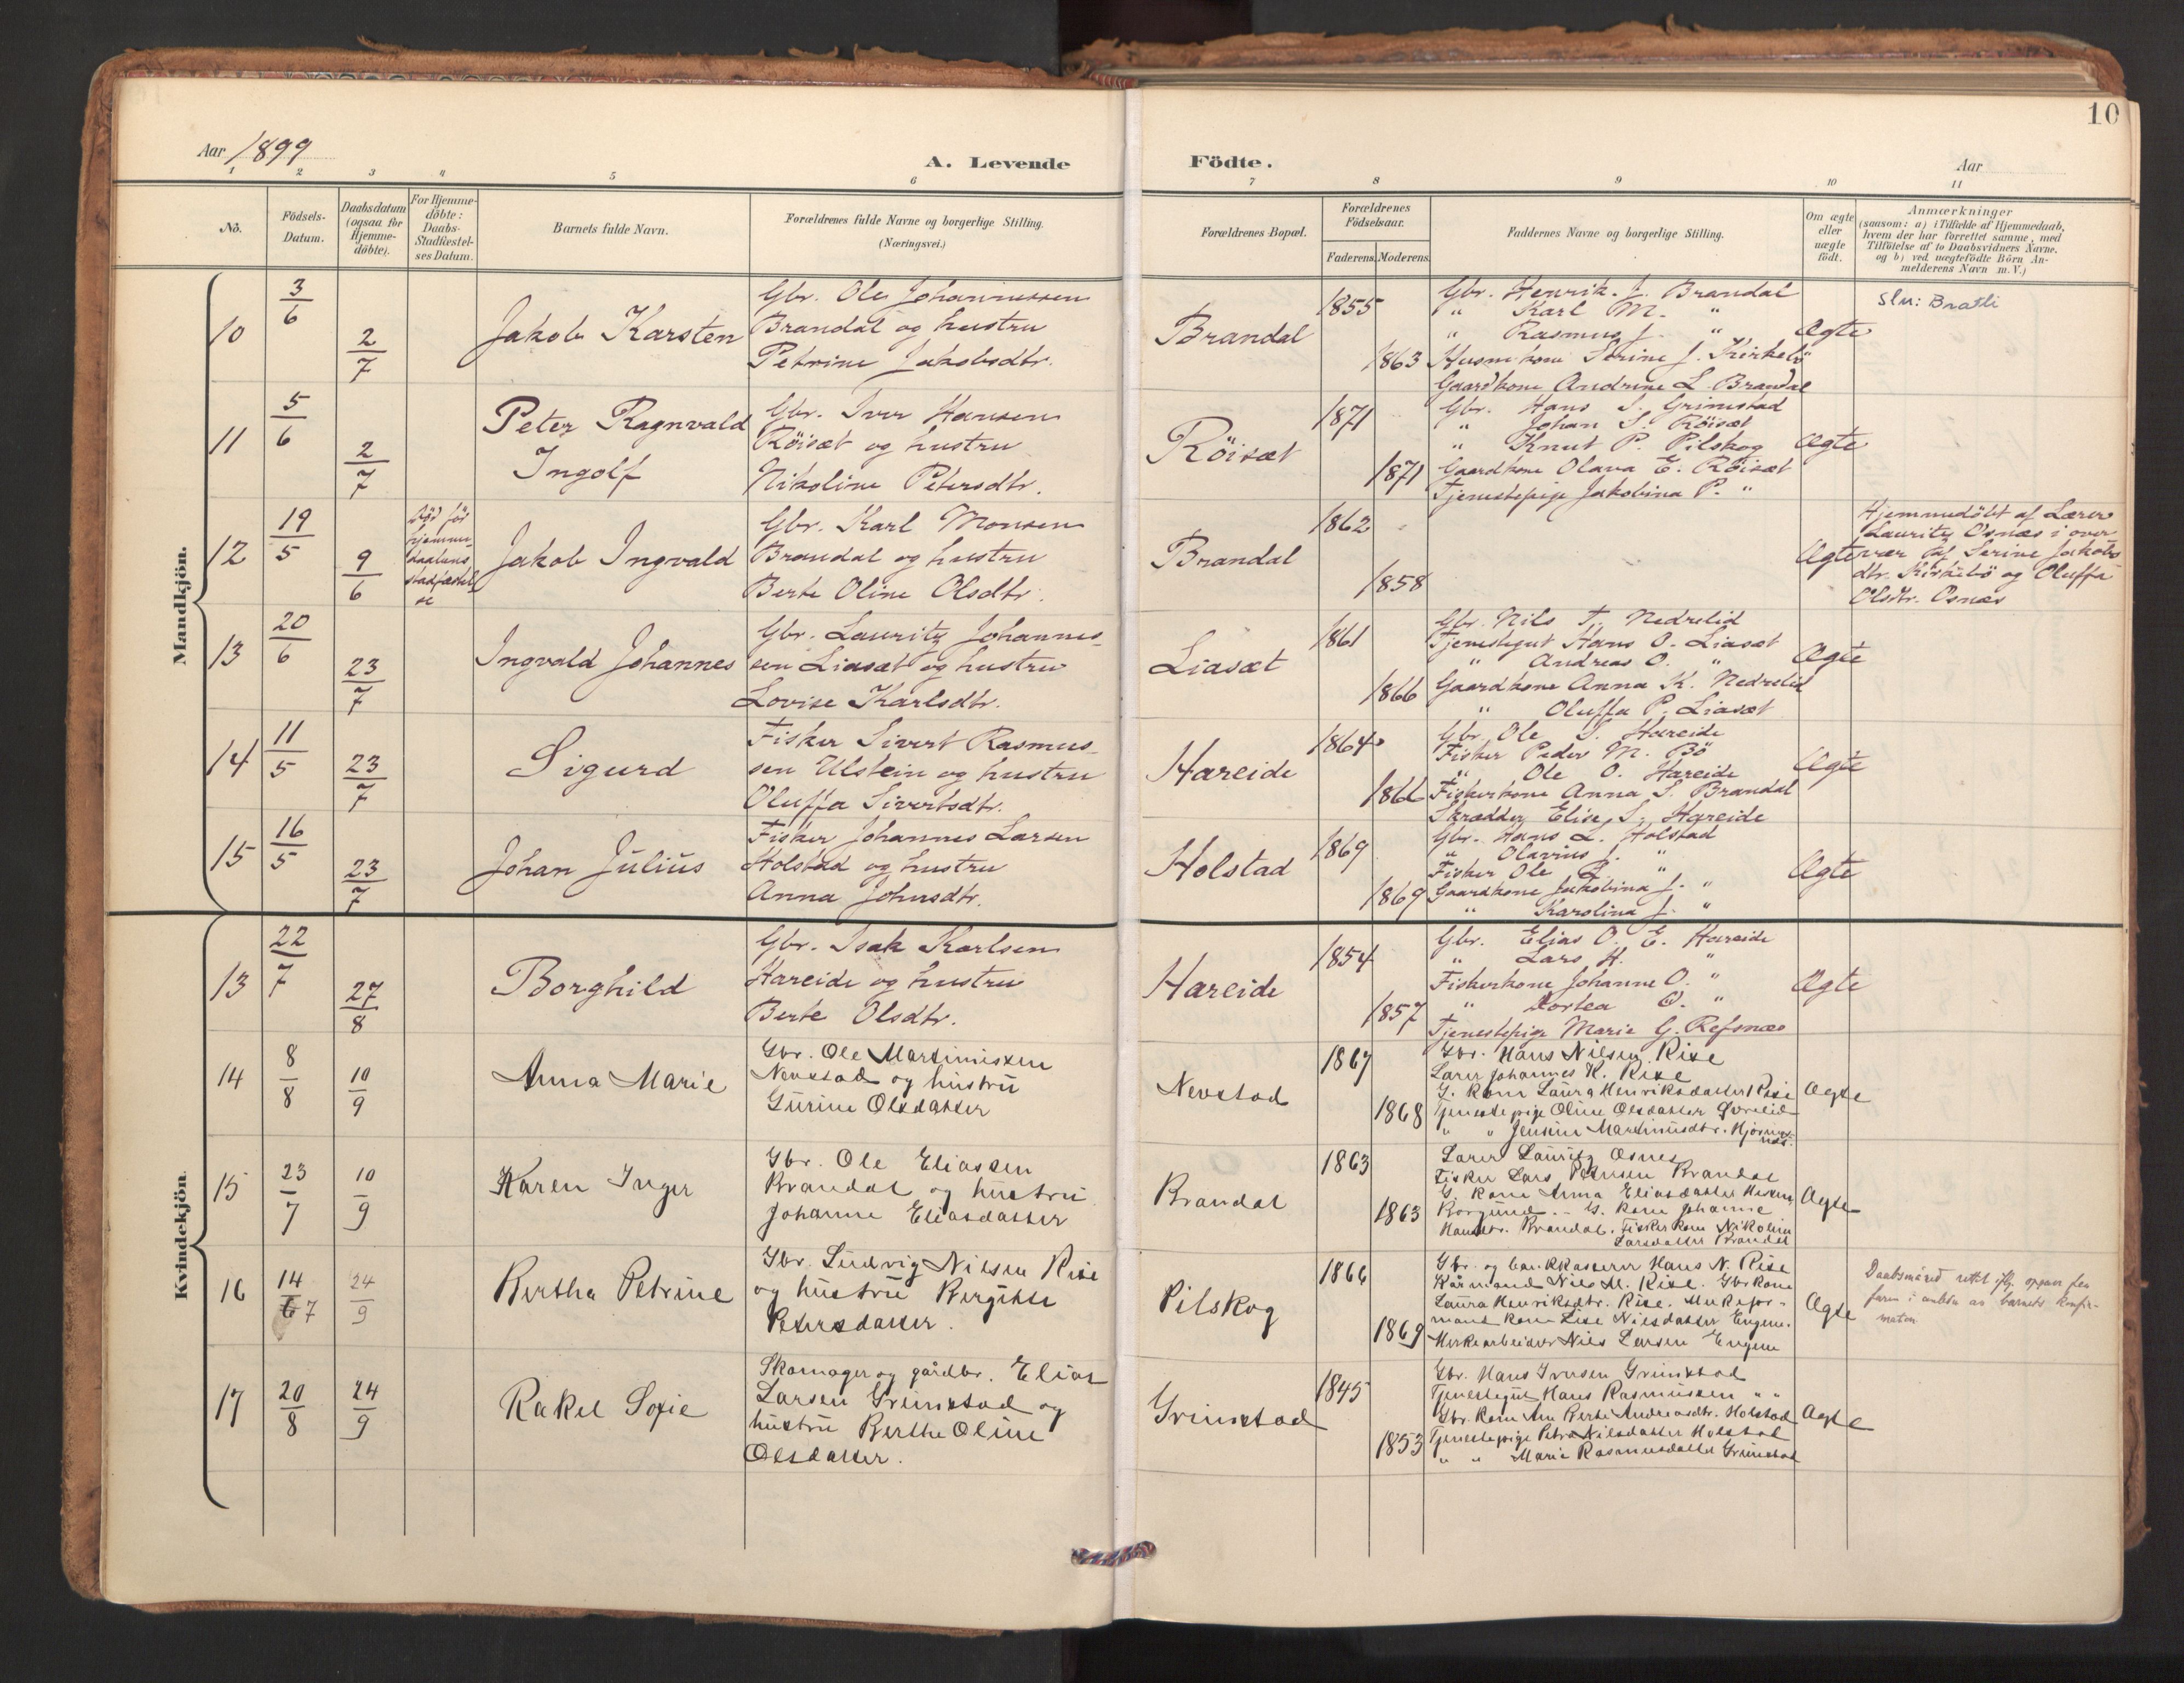 10
Aar 1899
A. Levende
Födte.
Aar
1 2 3 4 5 6 7 8 9 10 11
No.
Födsels-
Datum.
Daabsdatum
(ogsaa for
Hjemme-
döbte).
For Hjemme-
döbte:
Daabs-
Stadfæstel-
ses Datum.
Barnets fulde Navn.
Forældrenes fulde Navne og borgerlige Stilling.
(Næringsvei.)
Forældrenes Bopæl.
Forældrenes
Födselsaar.
Faderens. Moderens.
Faddernes Navne og borgerlige Stilling.
Om ægte
eller
uægte
födt.
Anmærkninger
(saasom: a) i Tilfælde af Hjemmedaab,
hvem der har forrettet samme, med
Tilföielse af to Daabsvidners Navne.
og b) ved uægtefödte Börn An-
melderens Navn m. V.)
Mandkjön.
10
3/6
2/7
Jakob Karsten
Gbr. Ole Johannessen
Brandal og hustru
Petrine Jakobsdtr.
Brandal
1855
1863
Gbr. Henrik J. Brandal
" Karl M. "
" Rasmus J. "
Husm.kone Serine J. Kirkebö
Gaardkone Andrine L. Brandal
Ægte
Sln: Bratli
11
5/6
2/7
Peter Ragnvald
Ingolf
Gbr. Iver Hansen
Röisæt og hustru
Nikoline Petersdtr.
Röisæt
1871
1871
Gbr. Hans S. Grimstad
" Johan S. Röisæt
" Knut P. Pilskog
Gaardkone Olava E. Röisæt
Tjenestepige Jakobina P. "
Ægte
12
19/5
9/6
Död för
hjemme-
daabens
stadfæstel
se
Jakob Ingvald
Gbr. Karl Monsen
Brandal og hustru
Berte Oline Olsdtr.
Brandal
1862
1858
Ægte
Hjemmedöbt af Lærer
Lauritz Osnæs i over-
vær af Serine Jakobs
dtr. Kirkebö og Oluffa
Olsdtr. Osnæs
13
20/6
23/7
Ingvald Johannes
Gbr. Lauritz Johannes-
sen Liasæt og hustru
Lovise Karlsdtr.
Liasæt
1861
1866
Gbr. Nils T. Nedrelid
Tjenestegut Hans O. Liasæt
" Andreas O. "
Gaardkone Anna K. Nedrelid
" Oluffa P. Liasæt
Ægte
14
11/5
23/7
Sigurd
Fisker Sivert Rasmus-
sen Ulstein og hustru
Oluffa Sivertsdtr.
Hareide
1864
1866
Gbr. Ole S. Hareide
Fisker Peder M. Bö
" Ole O. Hareide
Fiskerkone Anna S. Brandal
Skrædder Elise S. Hareide
Ægte
15
16/5
23/7
Johan Julius
Fisker Johannes Larsen
Holstad og hustru
Anna Johnsdtr.
Holstad
1869
1869
Gbr. Hans L. Holstad
" Olavius J. "
Fisker Ole L. "
Gaardkone Jakobina J. "
" Karolina J. "
Ægte
Kvindekjön.
13
22/7
27/8
Borghild
Gbr. Isak Karlsen
Hareide og hustru
Berte Olsdtr.
Hareide
1854
1857
Gbr. Elias O. E. Hareide
" Lars H. "
Fiskerkone Johanne O. "
" Dortea O. "
Tjenestepige Marie G. Refsnæs
Ægte
14
8/8
10/9
Anna Marie
Gbr. Ole Martinussen
Nevstad og hustru
Gurine Olsdatter
Nevstad
1867
1868
Gbr. Hans Nilsen Rise
Lærer Johannes H. Rise
G. kone Laura Henriksdatter Rise
Tjenestepige Oline Olsdatter Overlid
" " Jensine Martinusdtr. Hjörung-
nes.
Ægte
15
23/7
10/9
Karen Inger
Gbr. Ole Eliassen
Brandal og hustru
Johanne Eliasdatter
Brandal
1863
1863
Lærer Lauritz Osnes
Fisker Lars Petersen Brandal
G. kone Anna Eliasdatter
Borgund. - G. kone Johanne
Hansdtr. Brandal. Fiskerkone Nikoline
Larsdatter Brandal
Ægte
16
14/6 7
24/9
Bertha Petrine
Gbr. Ludvig Nilsen Rise
og hustru Bergitte
Petersdatter.
Pilskog
1866
1869
Gbr. og bankkasserer Hans N. Rise
Kårmand Nils M. Rise. Gbrkone
Laura Henriksdtr. Rise.
mands kone Lise Nilsdatter Engene.
Nils Larsen Engene
Ægte
Daabsmåned rettet ifg. opgave fra
faren i anledn. av barnets konfir-
mation
17
20/8
24/9
Rakel Sofie
Skomager og gårdbr. Elias
Larsen Grimstad og
hustru Berthe Oline
Olsdatter.
Grimstad
1845
1853
Gbr. Hans Iversen Grimstad
Tjenestegut Hans Rasmussen " "
Gbr. kone Ane Berte Andreasdtr. Holstad
Tjenestepige Petra Nilsdatter Holstad
" " Marie Rasmusdatter Grimstad
Ægte